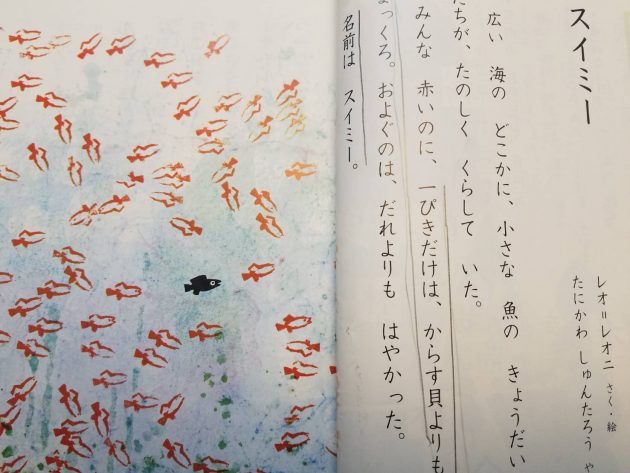 スイミー
レオ＝レオニ さく・絵
たにかわ しゅんたろう や
広い 海の どこかに、小さな 魚の きょうだい
たちが、たのしく くらして いた。
みんな 赤いのに、一ぴきだけは、からす貝よりも
まっくろ。およぐのは、だれよりも はやかった。
名前は スイミー。